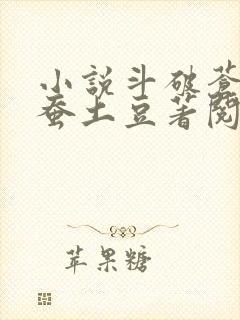 小説斗破蒼
蚕土豆著閱
苹果糖